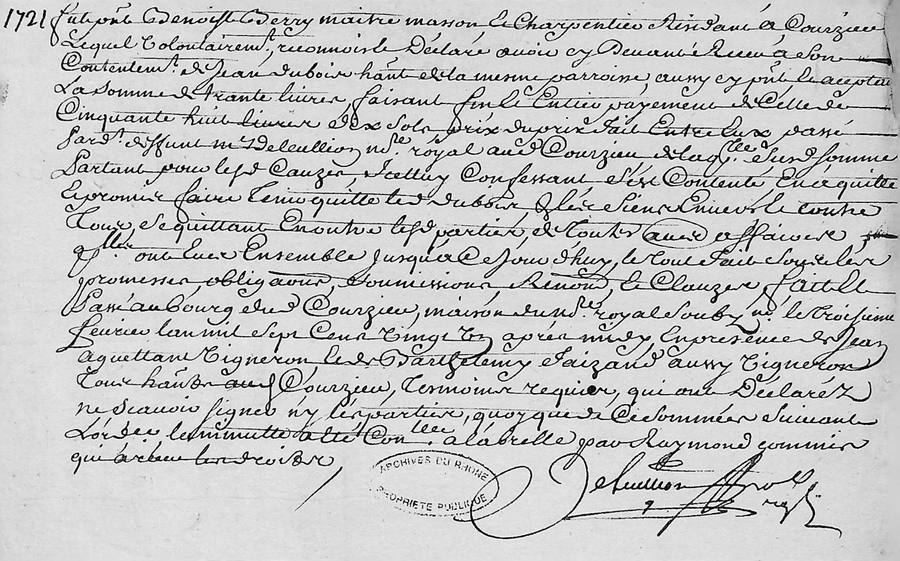 1721 fut pnt Benoist Berry maitre masson & Charpentier Residant a Courzieu
Lequel Volontairemt. reconnoist & Declare avoir cy Devant Receu a Son
Contentemt. de Jean dubois hant. de la mesme parroisse aussy cy pnt. & aceptant
La somme de trante livres faisant fin & Entier payement de Celle de
Cinquante huit livres dix Sols prix du prix fait Entre Eux passé
Pardt. deffunt me. Deleullion nre. royal aud Courzieu de laqlle. susd somme
Partant pour lesd Causes, Icelluy Confessant s'est Contenté En a quitté
& promis faire Tenir quitte led dubois & les Siens Envers & contre
Tous, Se quittant En outre lesd parties, de Toutes affaires
qlles ont Eues Ensemble Jusqu'a Ce Jour d'huy, le tout fait Sous les
promesses obligaons, Soumissions, Renons, & Clauzes fait &
Passé au bourg dud Courzieu, maison du nre. royal Soubzné le troisieme
fevrier lan mil Sept Cens Vingt Un après midy En presence de Jean
Vigneron, & de Barthelemy aussy Vigneron
Tous hants aud Courzieu, Tesmoins requis, qui ont Declarez
ne Scavoir signer n'y les parties, quoyque de Ce Sommées Suivant
L'ordce la minutte a été Conllee. a Labrelle par Raymond commis
qui a receu les droits
ARCHIVES DU RHONE
PROPRIETE PUBLIQUE
Deleullion